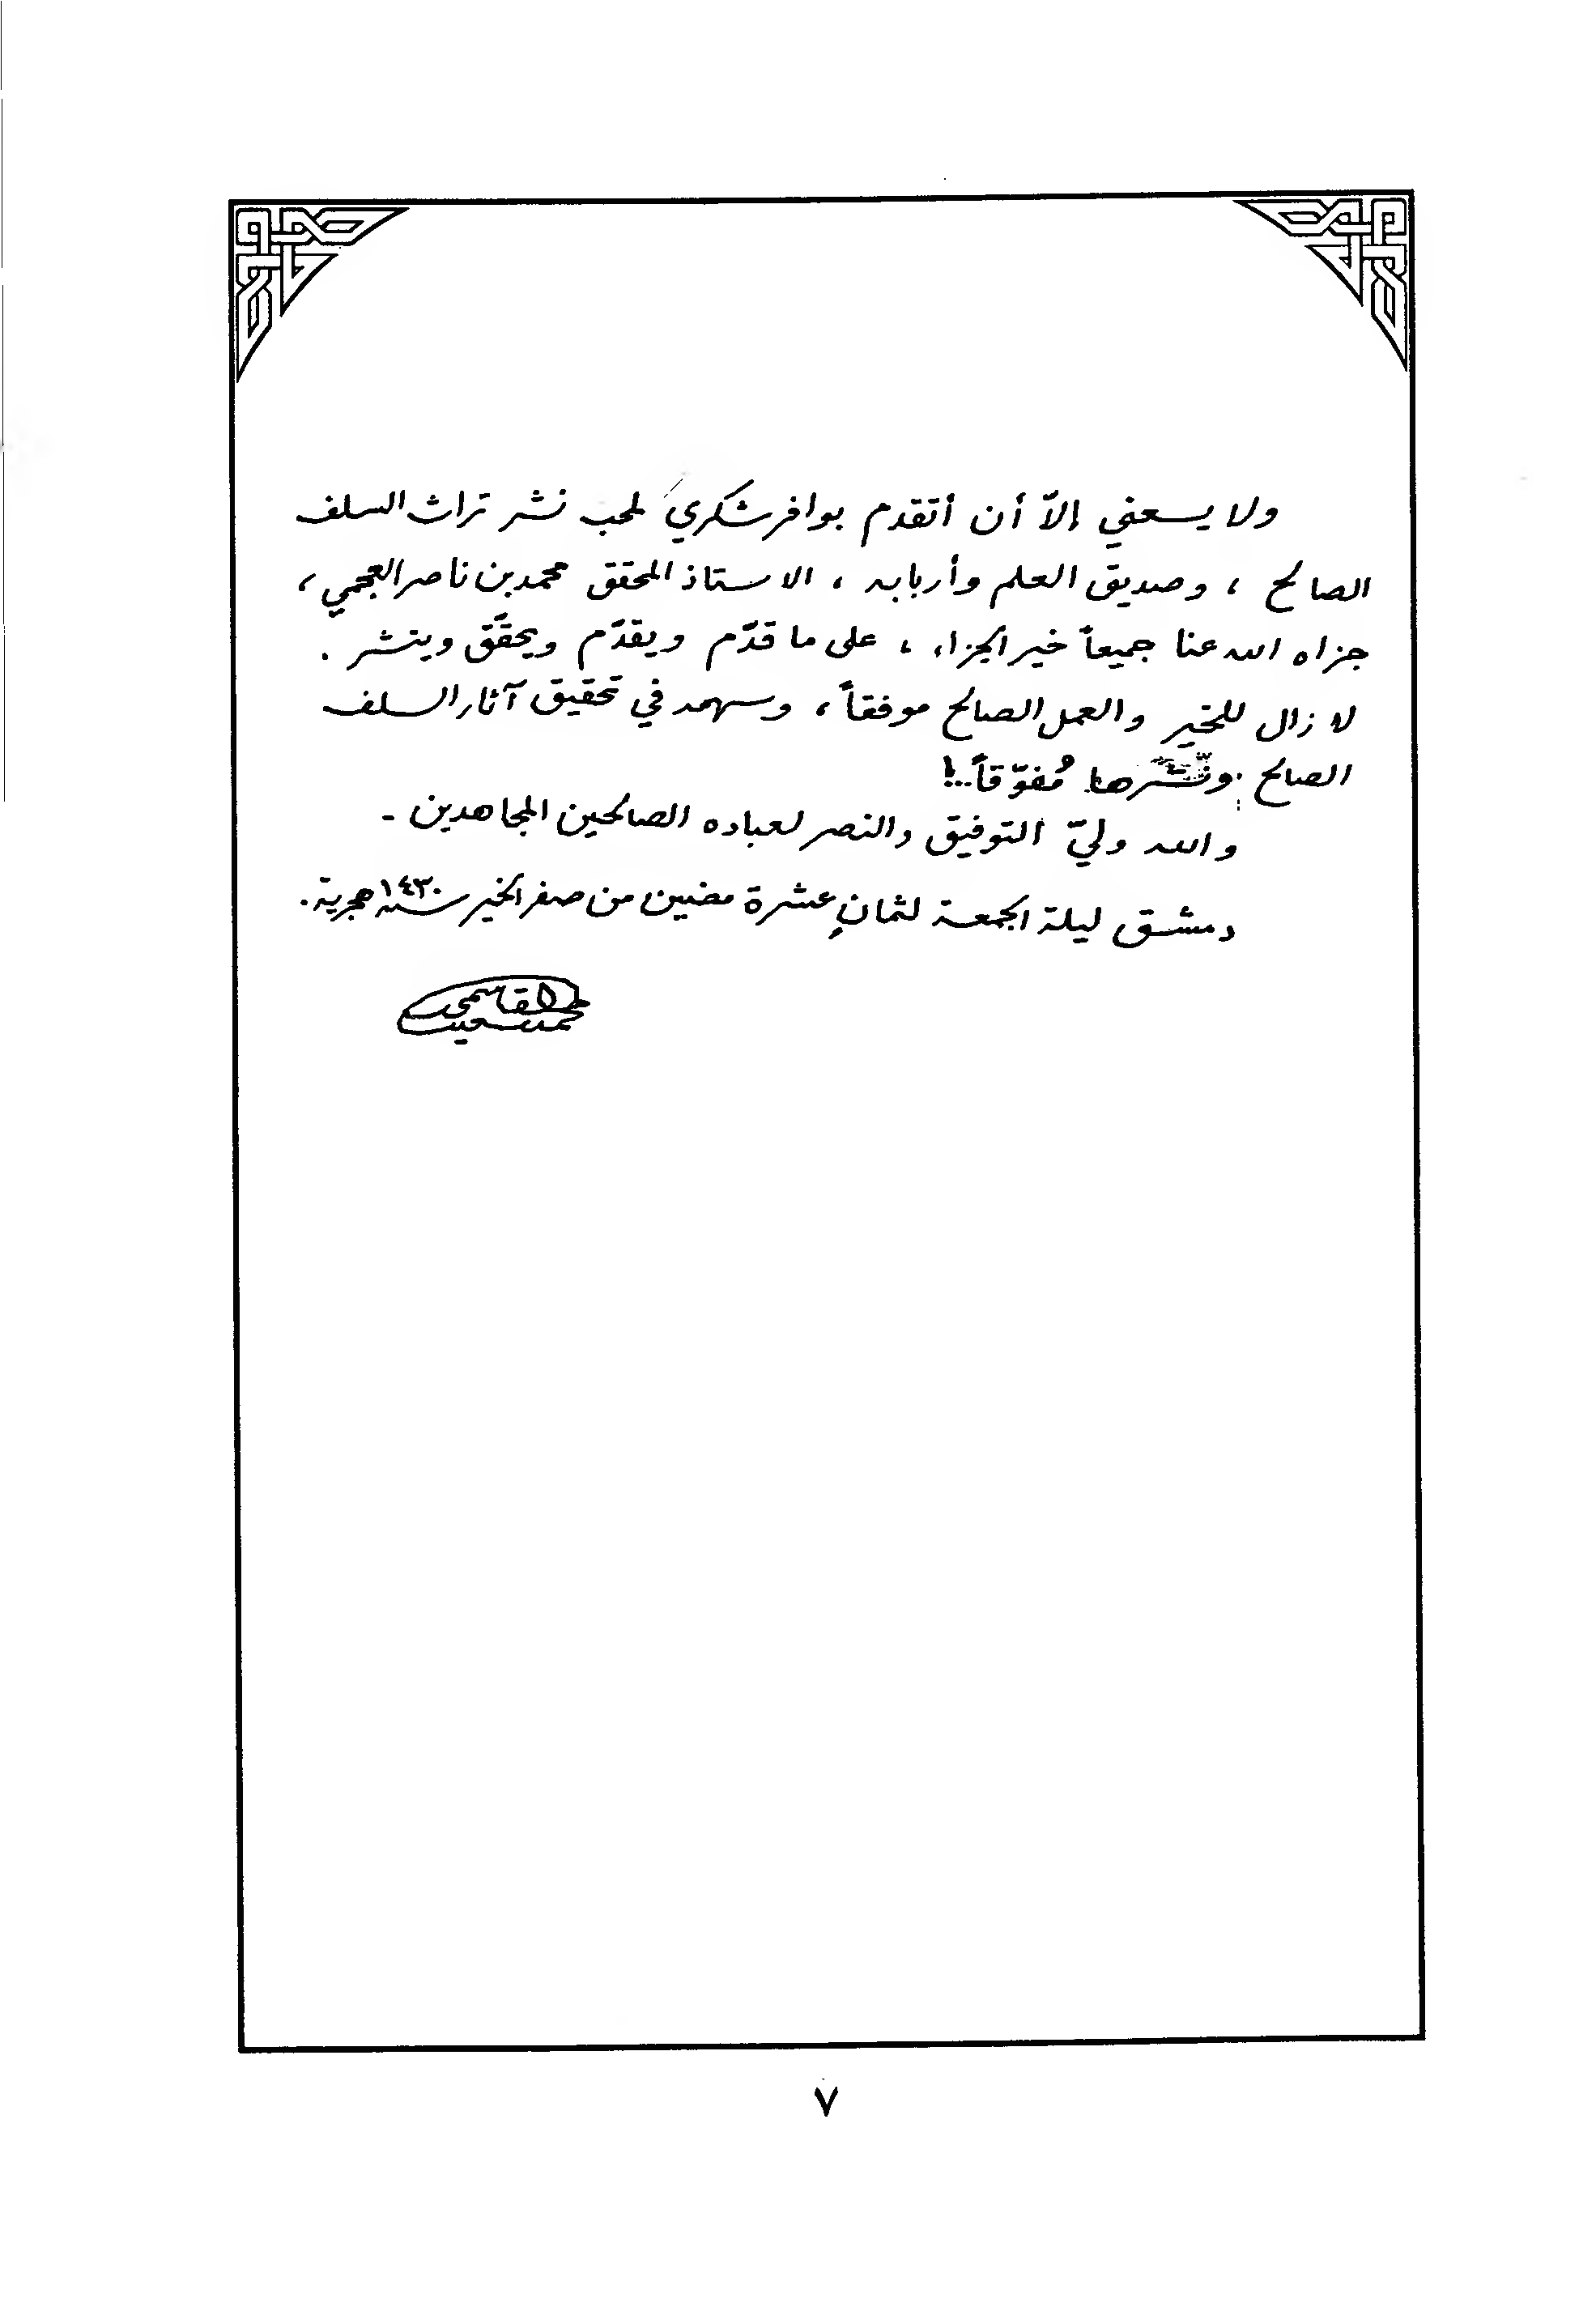 ولا يسعني إلاّ أن أتقدم بوافر شكري لمحب نشر تراث السلف
الصالح ، وصديق العلم وأربابه ، الاستاذ المحقق محمد بن ناصر العجمي ،
جزاه الله عنا جميعاً خير الجزاء ، على ما قدّم ويقدّم ويحقّق وينشر .
لا زال للخير والعمل الصالح موفقاً ، وسهمه في تحقيق آثار السلف
الصالح ونشرها مُفوّقاً..!
والله وليّ التوفيق والنصر لعباده الصالحين المجاهدين -
دمشق ليلة الجمعة لثمانٍ عشرة مضين من صفر الخير سنة ١٤٣٠ هجرية .
محمد سعيد القاسمي
٧